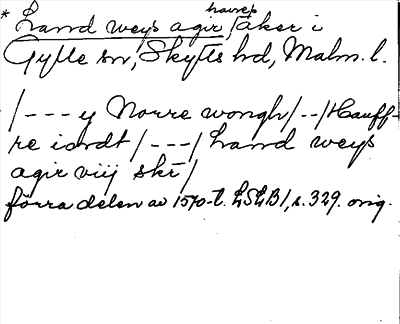 * Land weys agir, havrep åker i
Gylle sn, Skytts hd, Malm. l.
/--- y Norre wongh/--/Hauff-
re iordt/---/Land weys
agir viij skr/
förra delen av 1570-t. LSLB1, s. 329. orig.